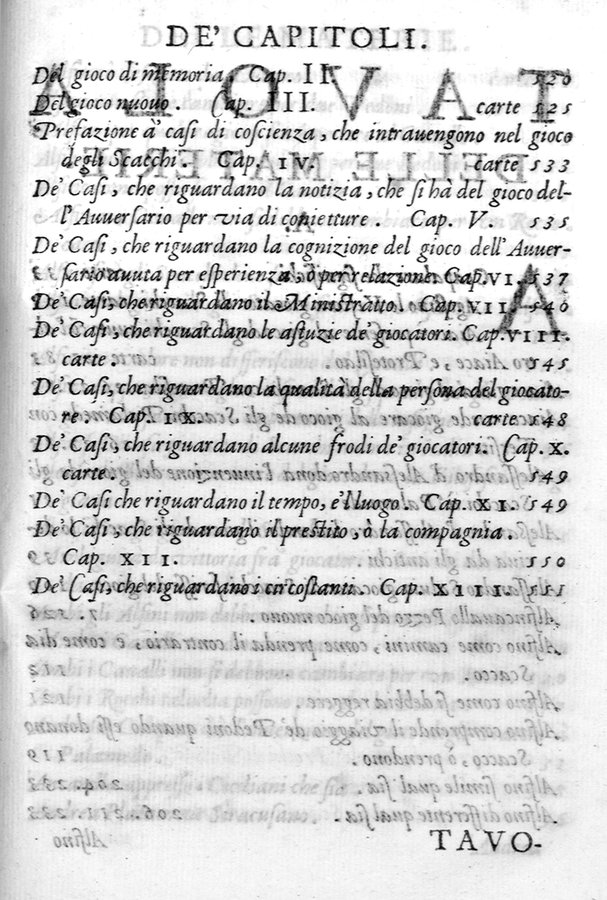 DE' CAPITOLI.
Del gioco di memoria. Cap. II. 520
Del gioco nuouo. Cap. III. carte 525
Prefazione à casi di coscienza, che intrauengono nel gioco
degli Scacchi. Cap. IV. carte 533
De' Casi, che riguardano la notizia, che si hà del gioco del-
l'Auuersario per via di coniettture. Cap. V. 535
De' Casi, che riguardano la cognizione del gioco dell'Auuer-
sario auuta per esperienza, ò per relazione. Cap. VI. 537
De' Casi, che riguardano il Ministrãto. Cap. VII. 540
De' Casi, che riguardano le astuzie de' giocatori. Cap. VIII.
carte. 545
De' Casi, che riguardano la qualità della persona del giocato-
re. Cap. IX. carte 548
De' Casi, che riguardano alcune frodi de' giocatori. Cap. X.
carte. 549
De' Casi che riguardano il tempo, e'l luogo Cap. XI. 549
De' Casi, che riguardano il prestito, ò la compagnia.
Cap. XII. 550
De' Casi, che riguardano i circostanti. Cap. XIII. 551
TAVO-